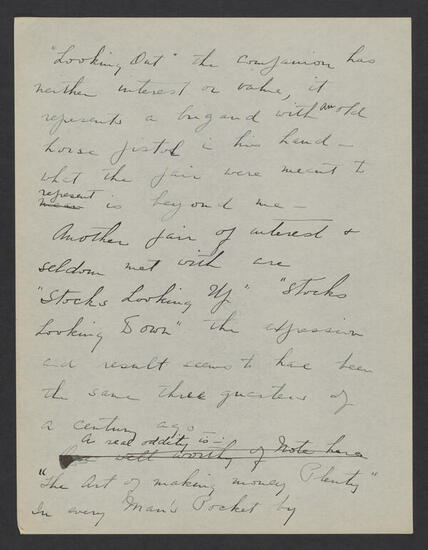 "Looking Out" the companion has
neither interest or value, it
represents a brigand with an old
horse pistol in his hand –
what the pair were meant to
represent
mean is beyond me –
Another pair of interest &
seldom met with are
"Stocks Looking Up" "Stocks
Looking Down" the expression
and result seems to have been
the same three quarters of
a century ago –
A real oddity is –:
well worthy of Note here
"The Art of making money Plenty"
In every Man's Pocket by